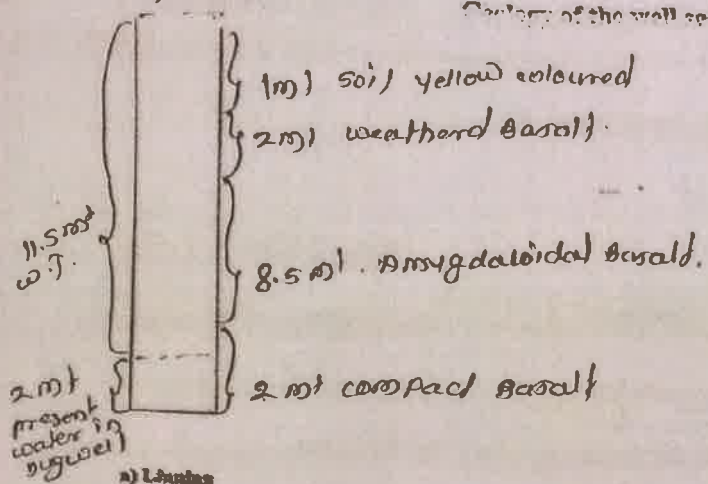 Geology of the well
1mt soil yellow coloured
2mt weatherd Basalt.
8.5 mt. Amygdaloidal Basalt.
2 mt compact Basalt
11.5 mt
W.T.
2 mt
present
water in
Dugwell
a) Linning